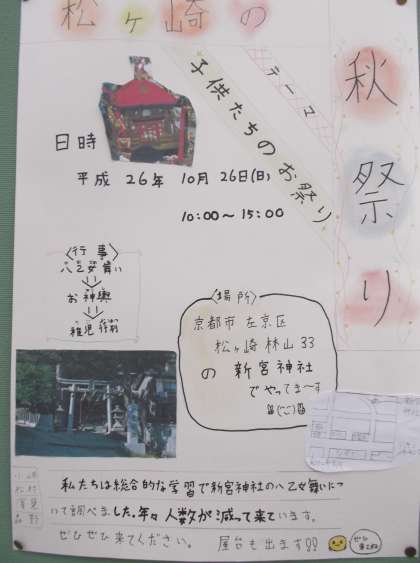 松ヶ崎の
秋祭り
テーマ
子供たちのお祭り
日時
平成 26年 10月 26日(日)
10:00～15:00
〈行事〉
八乙女舞い
お神輿
稚児行列
〈場所〉
京都市 左京区
松ヶ崎 林山 33
の 新宮神社
でやってま～す
私たちは総合的な学習で新宮神社の八乙女舞いにつ
いて調べました。年々人数が減って来ています。
ぜひぜひ来てください。 屋台も出ます!!